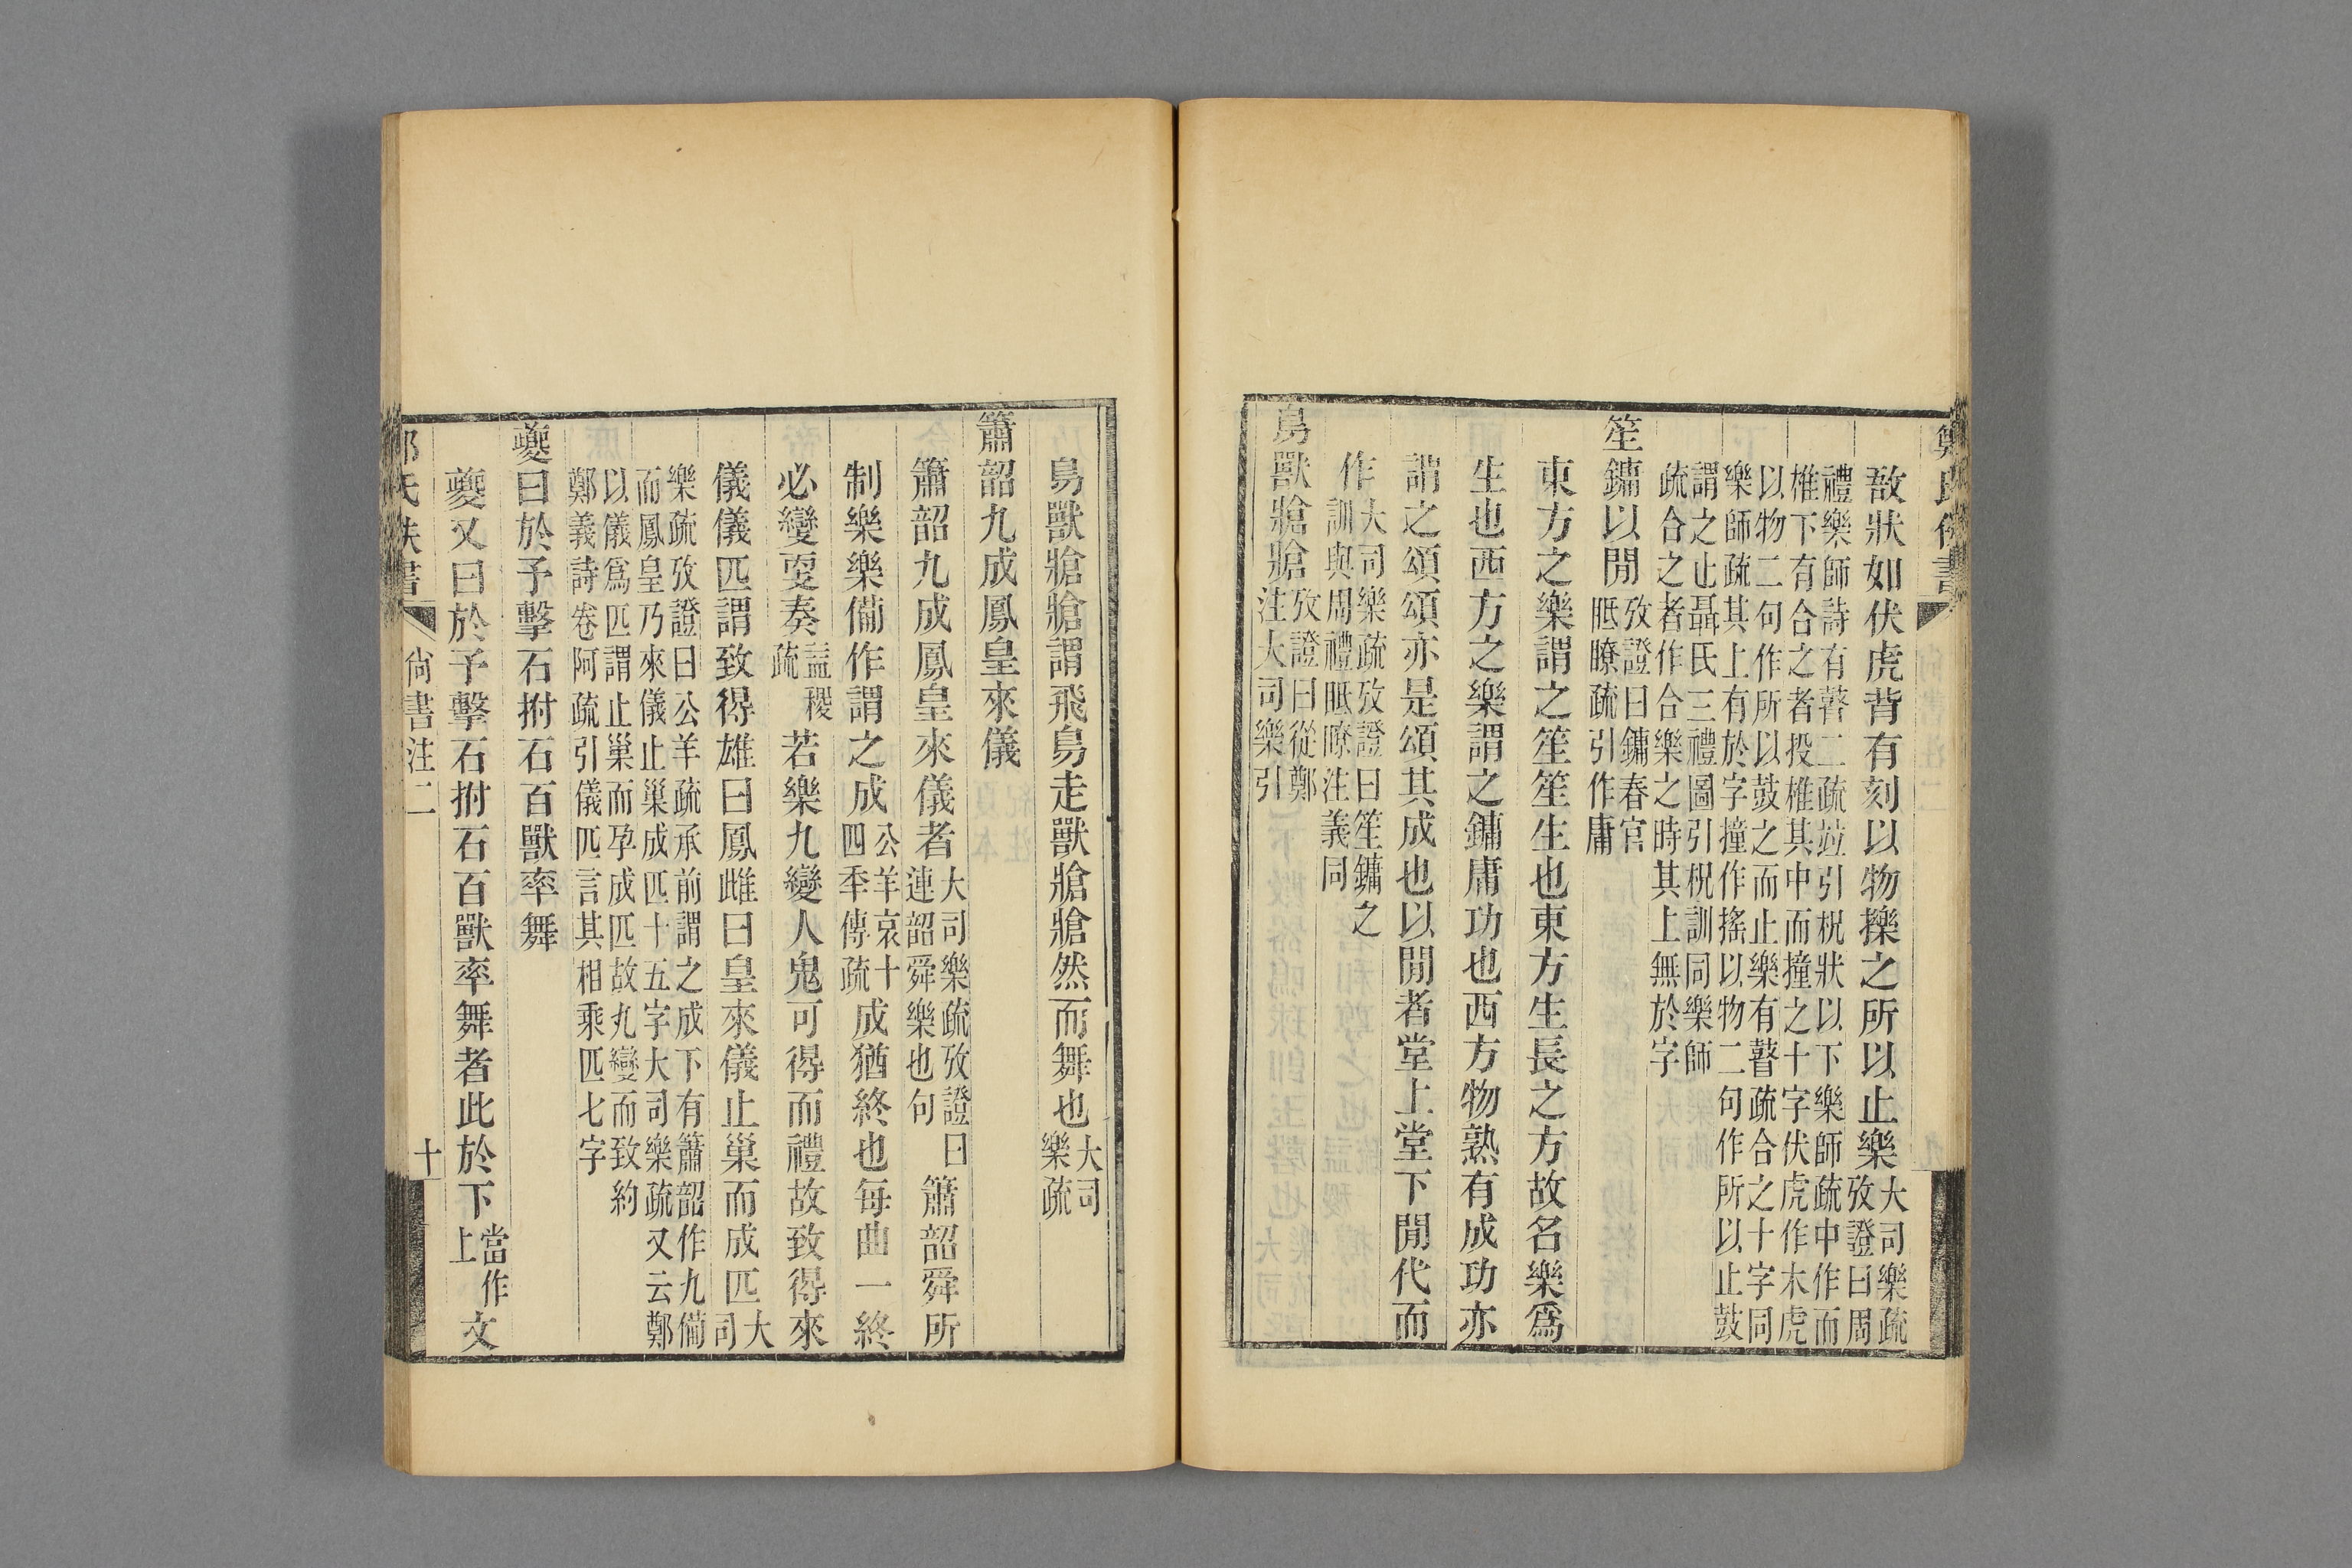 鄭氏佚書
敔狀如伏虎背有刻以物擽之所以止樂大司樂疏攷證曰周
禮樂師詩有瞽二疏竝引柷狀以下樂師疏中作而
椎下有合之者投椎其中而撞之十字伏虎作木虎
以物二句作所以鼓之而止樂有瞽疏合之十字同
樂師疏其上有於字撞作搖以物二句作所以止鼓
謂之止聶氏三禮圖引柷訓同樂師
疏合之者作合樂之時其上無於字
笙鏞以閒攷證曰鏞春官
眡瞭疏引作庸
東方之樂謂之笙笙生也東方生長之方故名樂爲
生也西方之樂謂之鏞庸功也西方物熟有成功亦
謂之頌頌亦是頌其成也以閒者堂上堂下閒代而
作大司樂疏攷證曰笙鏞之
訓與周禮眡瞭注義同
鳥獸牄牄攷證曰從鄭
注大司樂引
鳥獸牄牄謂飛鳥走獸牄牄然而舞也大司
樂疏
簫韶九成鳳皇來儀
簫韶九成鳳皇來儀者大司樂疏攷證曰
連韶舜樂也句簫韶舜所
制樂樂備作謂之成公羊哀十
四年傳疏成猶終也每曲一終
必變更奏益稷
疏若樂九變人鬼可得而禮故致得來
儀儀匹謂致得雄曰鳳雌曰皇來儀止巢而成匹大
司
樂疏攷證曰公羊疏承前謂之成下有簫韶作九備
而鳳皇乃來儀止巢成匹十五字大司樂疏又云鄭
以儀爲匹謂止巢而孕成匹故九變而致約
鄭義詩卷阿疏引儀匹言其相乘匹七字
夔曰於予擊石拊石百獸率舞
夔又曰於予擊石拊石百獸率舞者此於下當作
上文
氏佚書
尙書注二
十